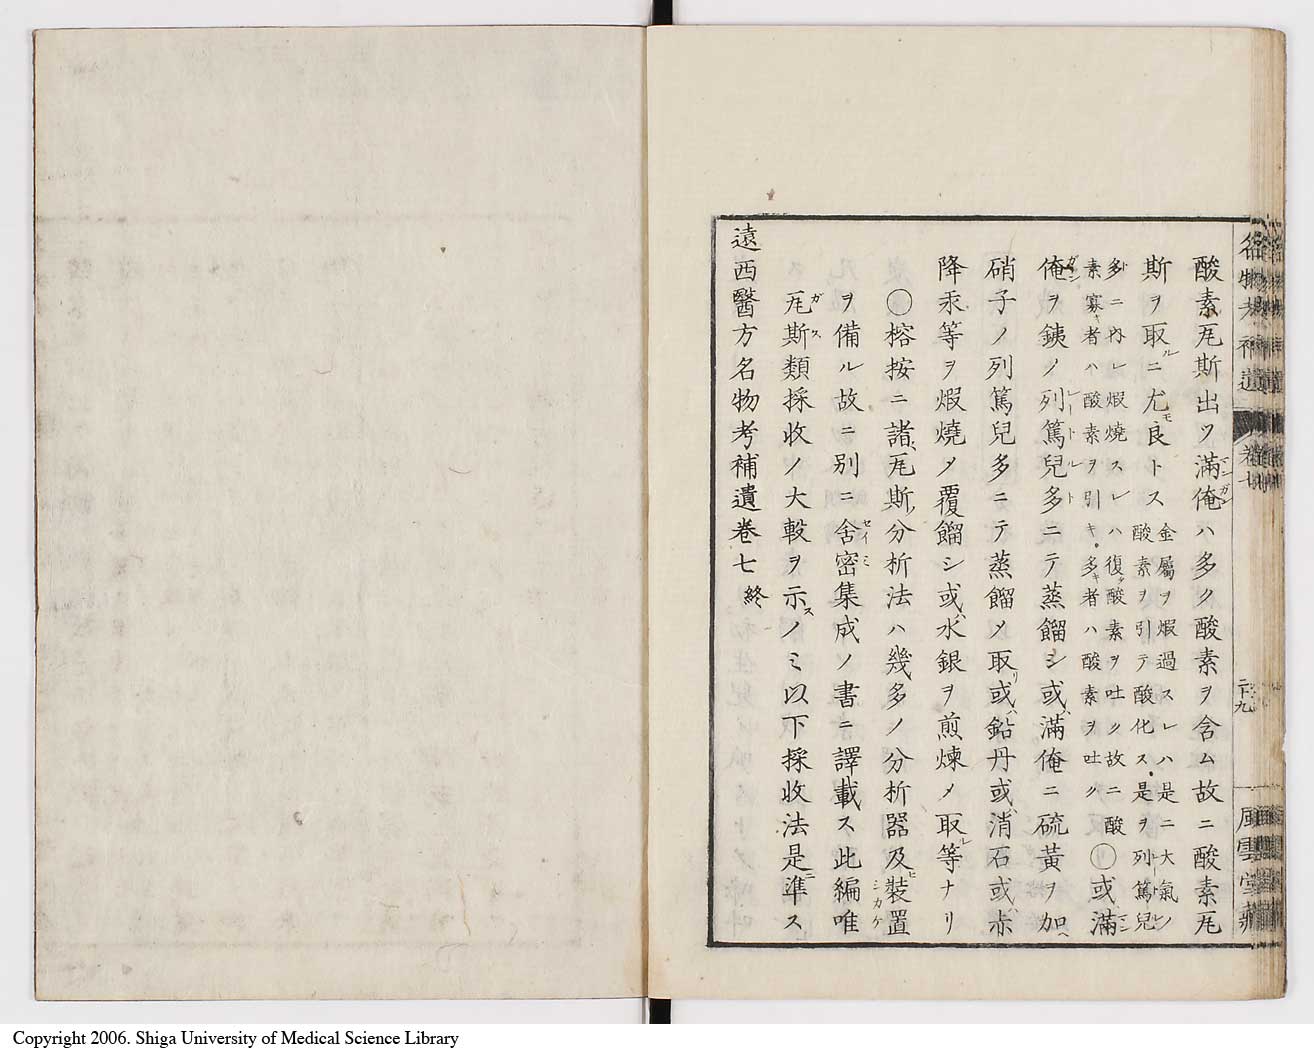 酸素瓦斯出ツ滿俺ハ多ク酸素ヲ含ム故ニ酸素瓦
斯ヲ取ルニ尤モ良トス金屬ヲ煆過スレハ是ニ大氣ノ
酸素ヲ引テ酸化ス是ヲ列篤兒
多ニ內レ煆燒スレハ復タ酸素ヲ吐ク故ニ酸
素寡キ者ハ酸素ヲ引キ多キ者ハ酸素ヲ吐ク〇或ハ滿
俺ヲ銕ノ列篤兒多ニテ蒸餾シ或ハ滿俺ニ硫黃ヲ加ヘ
硝子ノ列篤兒多ニテ蒸餾メ取リ或ハ鉛丹或ハ消石或ハ赤
降汞等ヲ煆燒メ覆餾シ或ハ水銀ヲ煎煉メ取ル等ナリ
〇榕按ニ諸瓦斯ノ分析法ハ幾多ノ分析器及ヒ裝置シカケ
ヲ備ル故ニ別ニ舍密セイミ集成ノ書ニ譯載ス此編唯
瓦斯ガス類採收ノ大較ヲ示スノミ以下採收法是ニ準ス
遠西醫方名物考補遺卷七終
名物考補遺 卷七 二十九 風雲堂藏
Copyright 2006. Shiga University of Medical Science Library